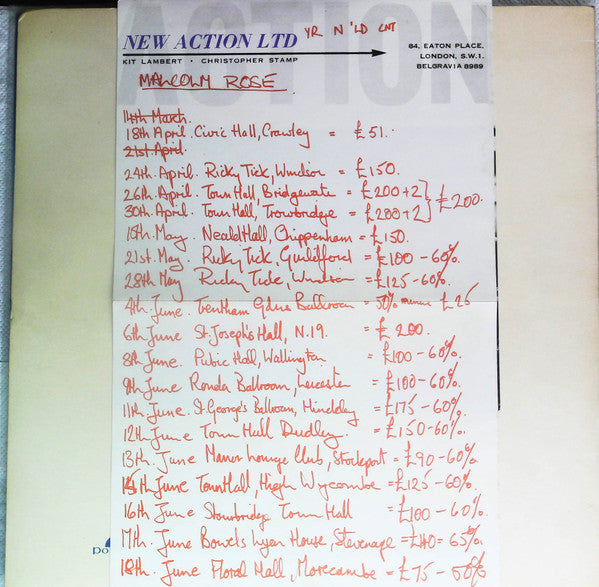 ACTION
NEW ACTION LTD
YR N'LD CNT
KIT LAMBERT • CHRISTOPHER STAMP
84, EATON PLACE,
LONDON, S.W.1.
BELGRAVIA 8989
MALCOLM ROSE.
14th March.
18th April. Civic Hall, Crawley = £51.
21st April.
24th April. Ricky Tick, Windsor = £150.
26th April. Town Hall, Bridgewater = £200÷2 } £200.
30th April. Town Hall, Trowbridge = £200÷2
15th May. Neald Hall, Chippenham = £150.
21st May. Ricky Tick, Guildford = £100 - 60%.
28th May Ricky Tick, Windsor = £125 - 60%.
4th June. Trentham Gdns Ballroom = 50% minus £25
6th June St. Joseph's Hall, N.19. = £200.
8th June. Public Hall, Wallington = £100 - 60%.
9th June Ronda Ballroom, Leicester = £100 - 60%.
11th June. St. George's Ballroom, Hinckley = £175 - 60%.
12th June Town Hall Dudley. = £150 - 60%.
13th June Manor Lounge Club, Stockport = £90 - 60%
15th June Town Hall, High Wycombe = £125 - 60%.
16th June Stourbridge Town Hall = £100 - 60%
17th June Bowes Lyon House, Stevenage = £110 = 65%.
18th June Floral Hall, Morecambe = £75 - 50%
po